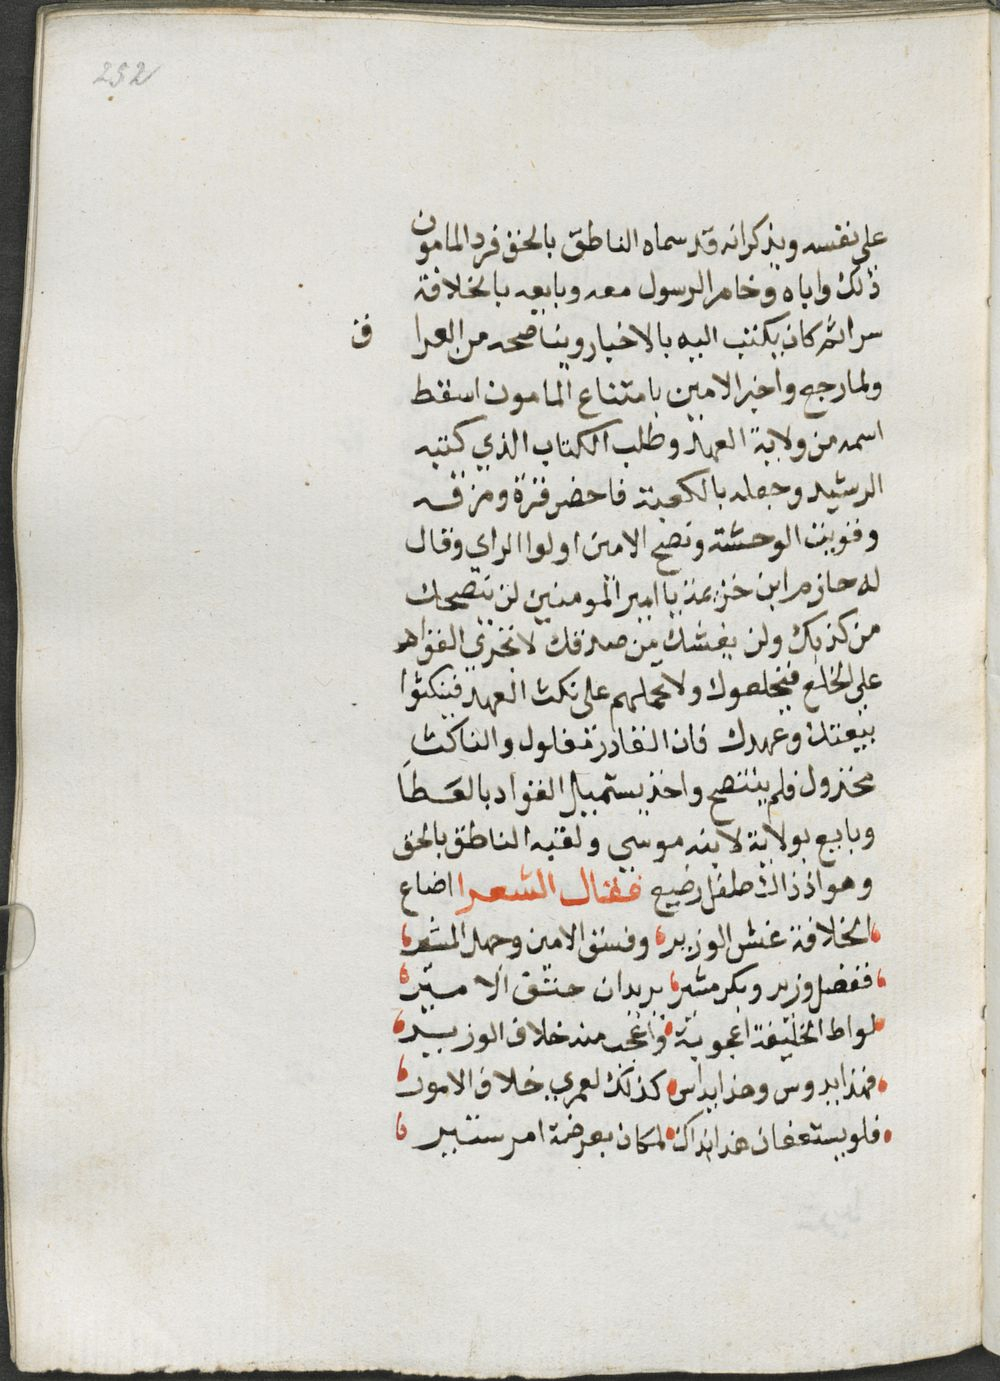 252
على نفسه ويذكر انه قد سماه الناطق بالحق فرد المامون
ذلك واباه وخامر الرسول معه وبايعه بالخلافة
سرا ثم كان يكتب اليه بالاخبار ويناصحه من العرا ق
ولما رجع واخبر الامين بامتناع المامون اسقط
اسمه من ولاية العهد وطلب الكتاب الذي كتبه
الرشيد وجعله بالكعبة فاحضره ومزقه
وقويت الوحشة ونصح الامين اولوا الراي وقال
له حازم ابن خزيمة يا امير المومنين لن ينصحك
من كذبك ولن يغشك من صدقك لا تجري القواد
على الخلع فيخلعوك ولا تحملهم على نكث العهد فينكثوا
بيعتك وعهدك فان الغادر مغلول والناكث
مخذول فلم ينتصح واخذ يستميل القواد بالعطا
وبايع بولاية لابنه موسي ولقبه الناطق بالحق
وهو اذ ذاك طفل رضيع فقال الشعرا اضاع
الخلافة غش الوزير وفسق الامين وجهل المشير
ففضل وزير وبكر مشير يريدان حتف الامير
لواط الخليفة اعجوبة واعجب منه خلاف الوزير
فهذا يدوس وهذا يداس كذلك لعمري خلاف الامور
فلو يستعفان هذا بذاك لكان بعرضة امر ستير